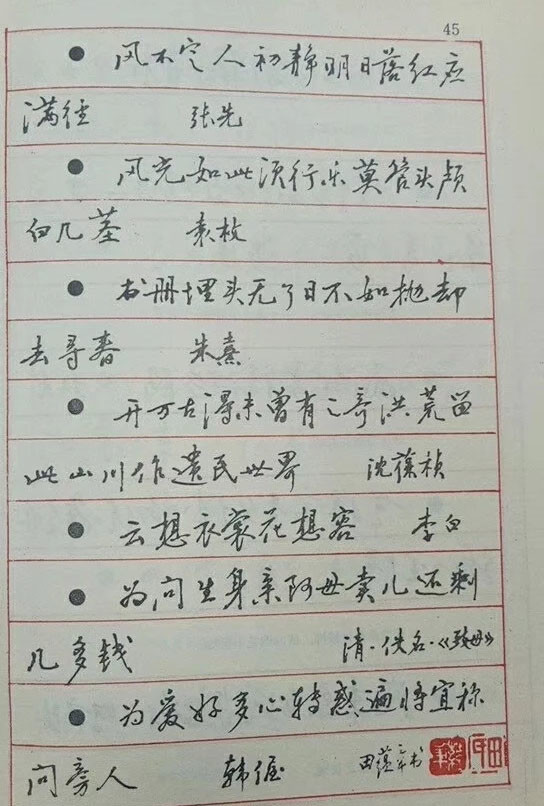 45
• 风不定人初静明日落红应
满径 张先
• 风光如此须行乐莫管头颅
白几茎 袁枚
• 书册埋头无了日不如抛却
去寻春 朱熹
• 开万古得未曾有之奇洪荒留
此山川作遗民世界 沈葆桢
• 云想衣裳花想容 李白
• 为问生身亲阿母卖儿还剩
几多钱 清·佚名·《致母》
• 为爱好多心转惑遍将宜称
问旁人 韩偓 田蕴章书